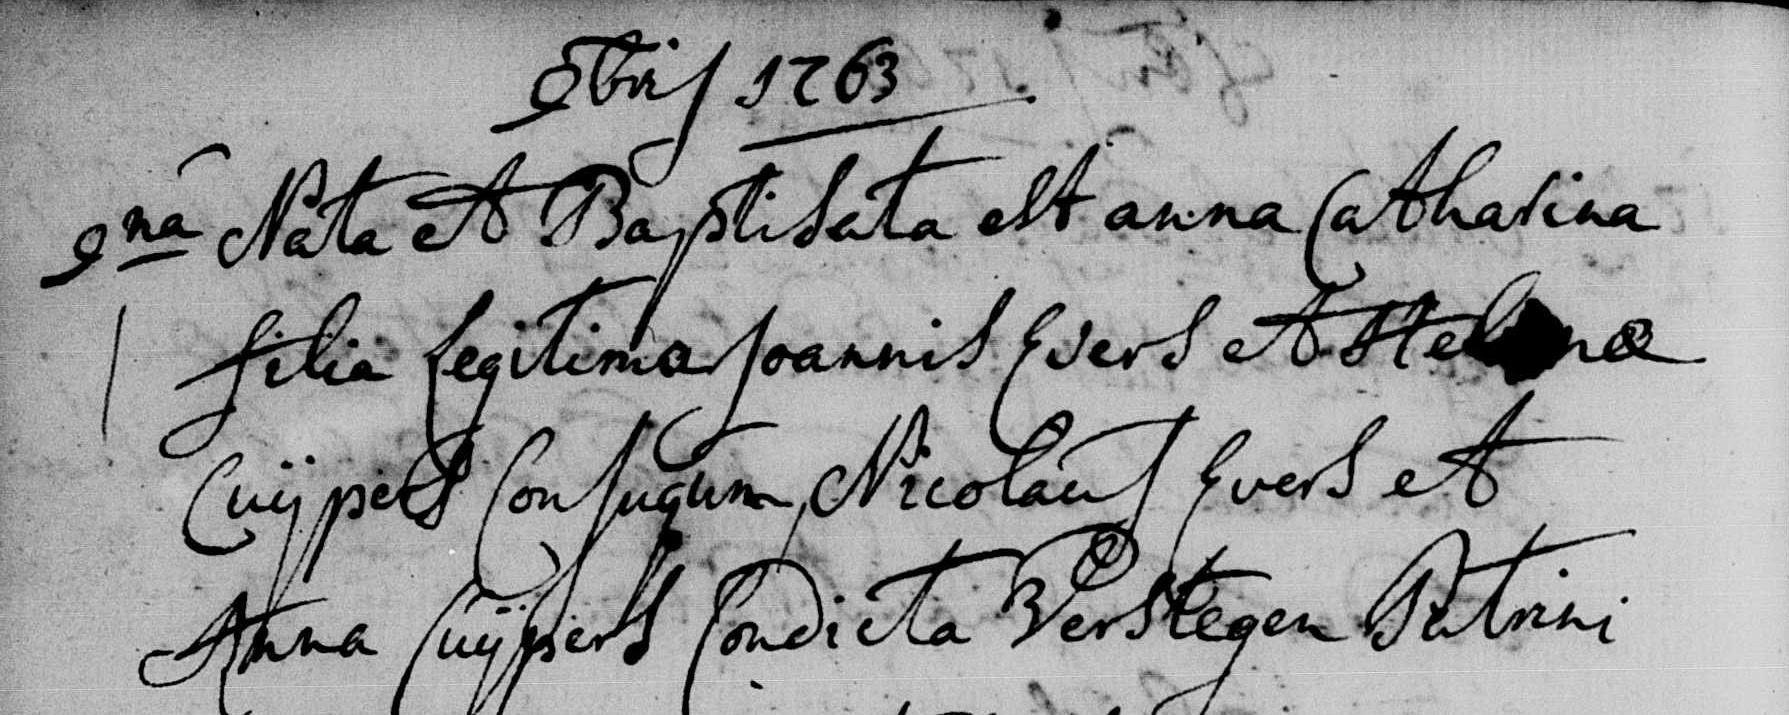 9bris 1763
9na Nata et Baptisata est anna Catharina
filia Legitima Joannis Evers et
Cuÿpers Conjugum, Nicolaus Evers et
Anna Cuÿpers Condicta Verstegen Patrini